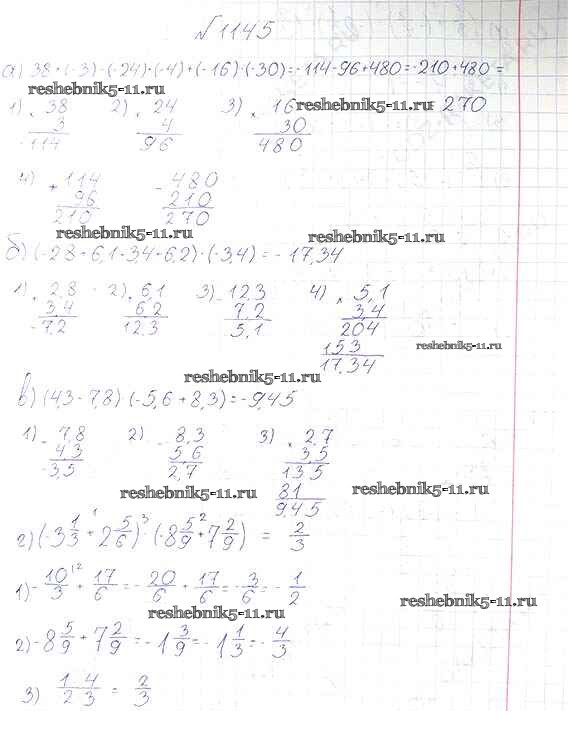 №1145
а) 38·(-3)-(-24)·(-4)+(-16)·(-30)=-114-96+480=-210+480=
reshebnik5-11.ru reshebnik5-11.ru = 270
1) × 38 2) 24 3) × 16
3 4 30
-114 96 480
4) + 114 - 480
96 210
210 270
reshebnik5-11.ru reshebnik5-11.ru
б) (-2,8+6,1-3,4+6,2)·(-3,4)=-17,34
1) 2,8 2) 6,1 3) 12,3 4) × 5,1
3,4 6,2 7,2 3,4
-7,2 12,3 5,1 204
153 reshebnik5-11.ru
17,34
reshebnik5-11.ru
в) (4,3-7,8)·(-5,6+8,3)=-9,45
1) - 7,8 2) - 8,3 3) × 2,7
4,3 5,6 3,5
-3,5 2,7 135
reshebnik5-11.ru 81 reshebnik5-11.ru
9,45
г) (-3 1/3 + 2 5/6)·(-8 5/9 + 7 2/9) = 2/3
1) - 10/3 + 17/6 = - 20/6 + 17/6 = - 3/6 = - 1/2
reshebnik5-11.ru reshebnik5-11.ru
2) -8 5/9 + 7 2/9 = -1 3/9 = -1 1/3 = - 4/3
3) 1/2 · 4/3 = 2/3